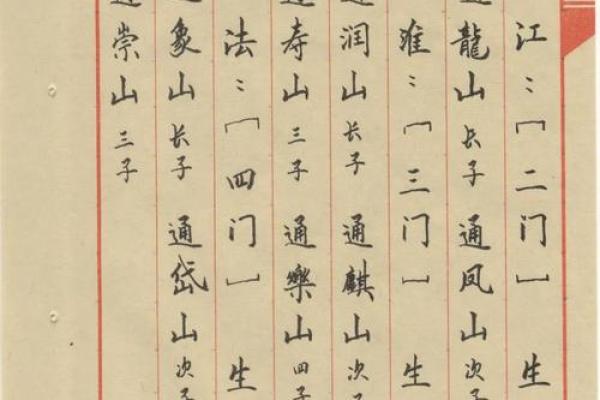 江：[二门] 生
通龍山 长子 通凤山 次子
淮：[三门] 生
通润山 长子 通麒山 次
通寿山 三子 通樂山 四子
法：[四门] 生
通象山 长子 通岱山 次子
通崇山 三子